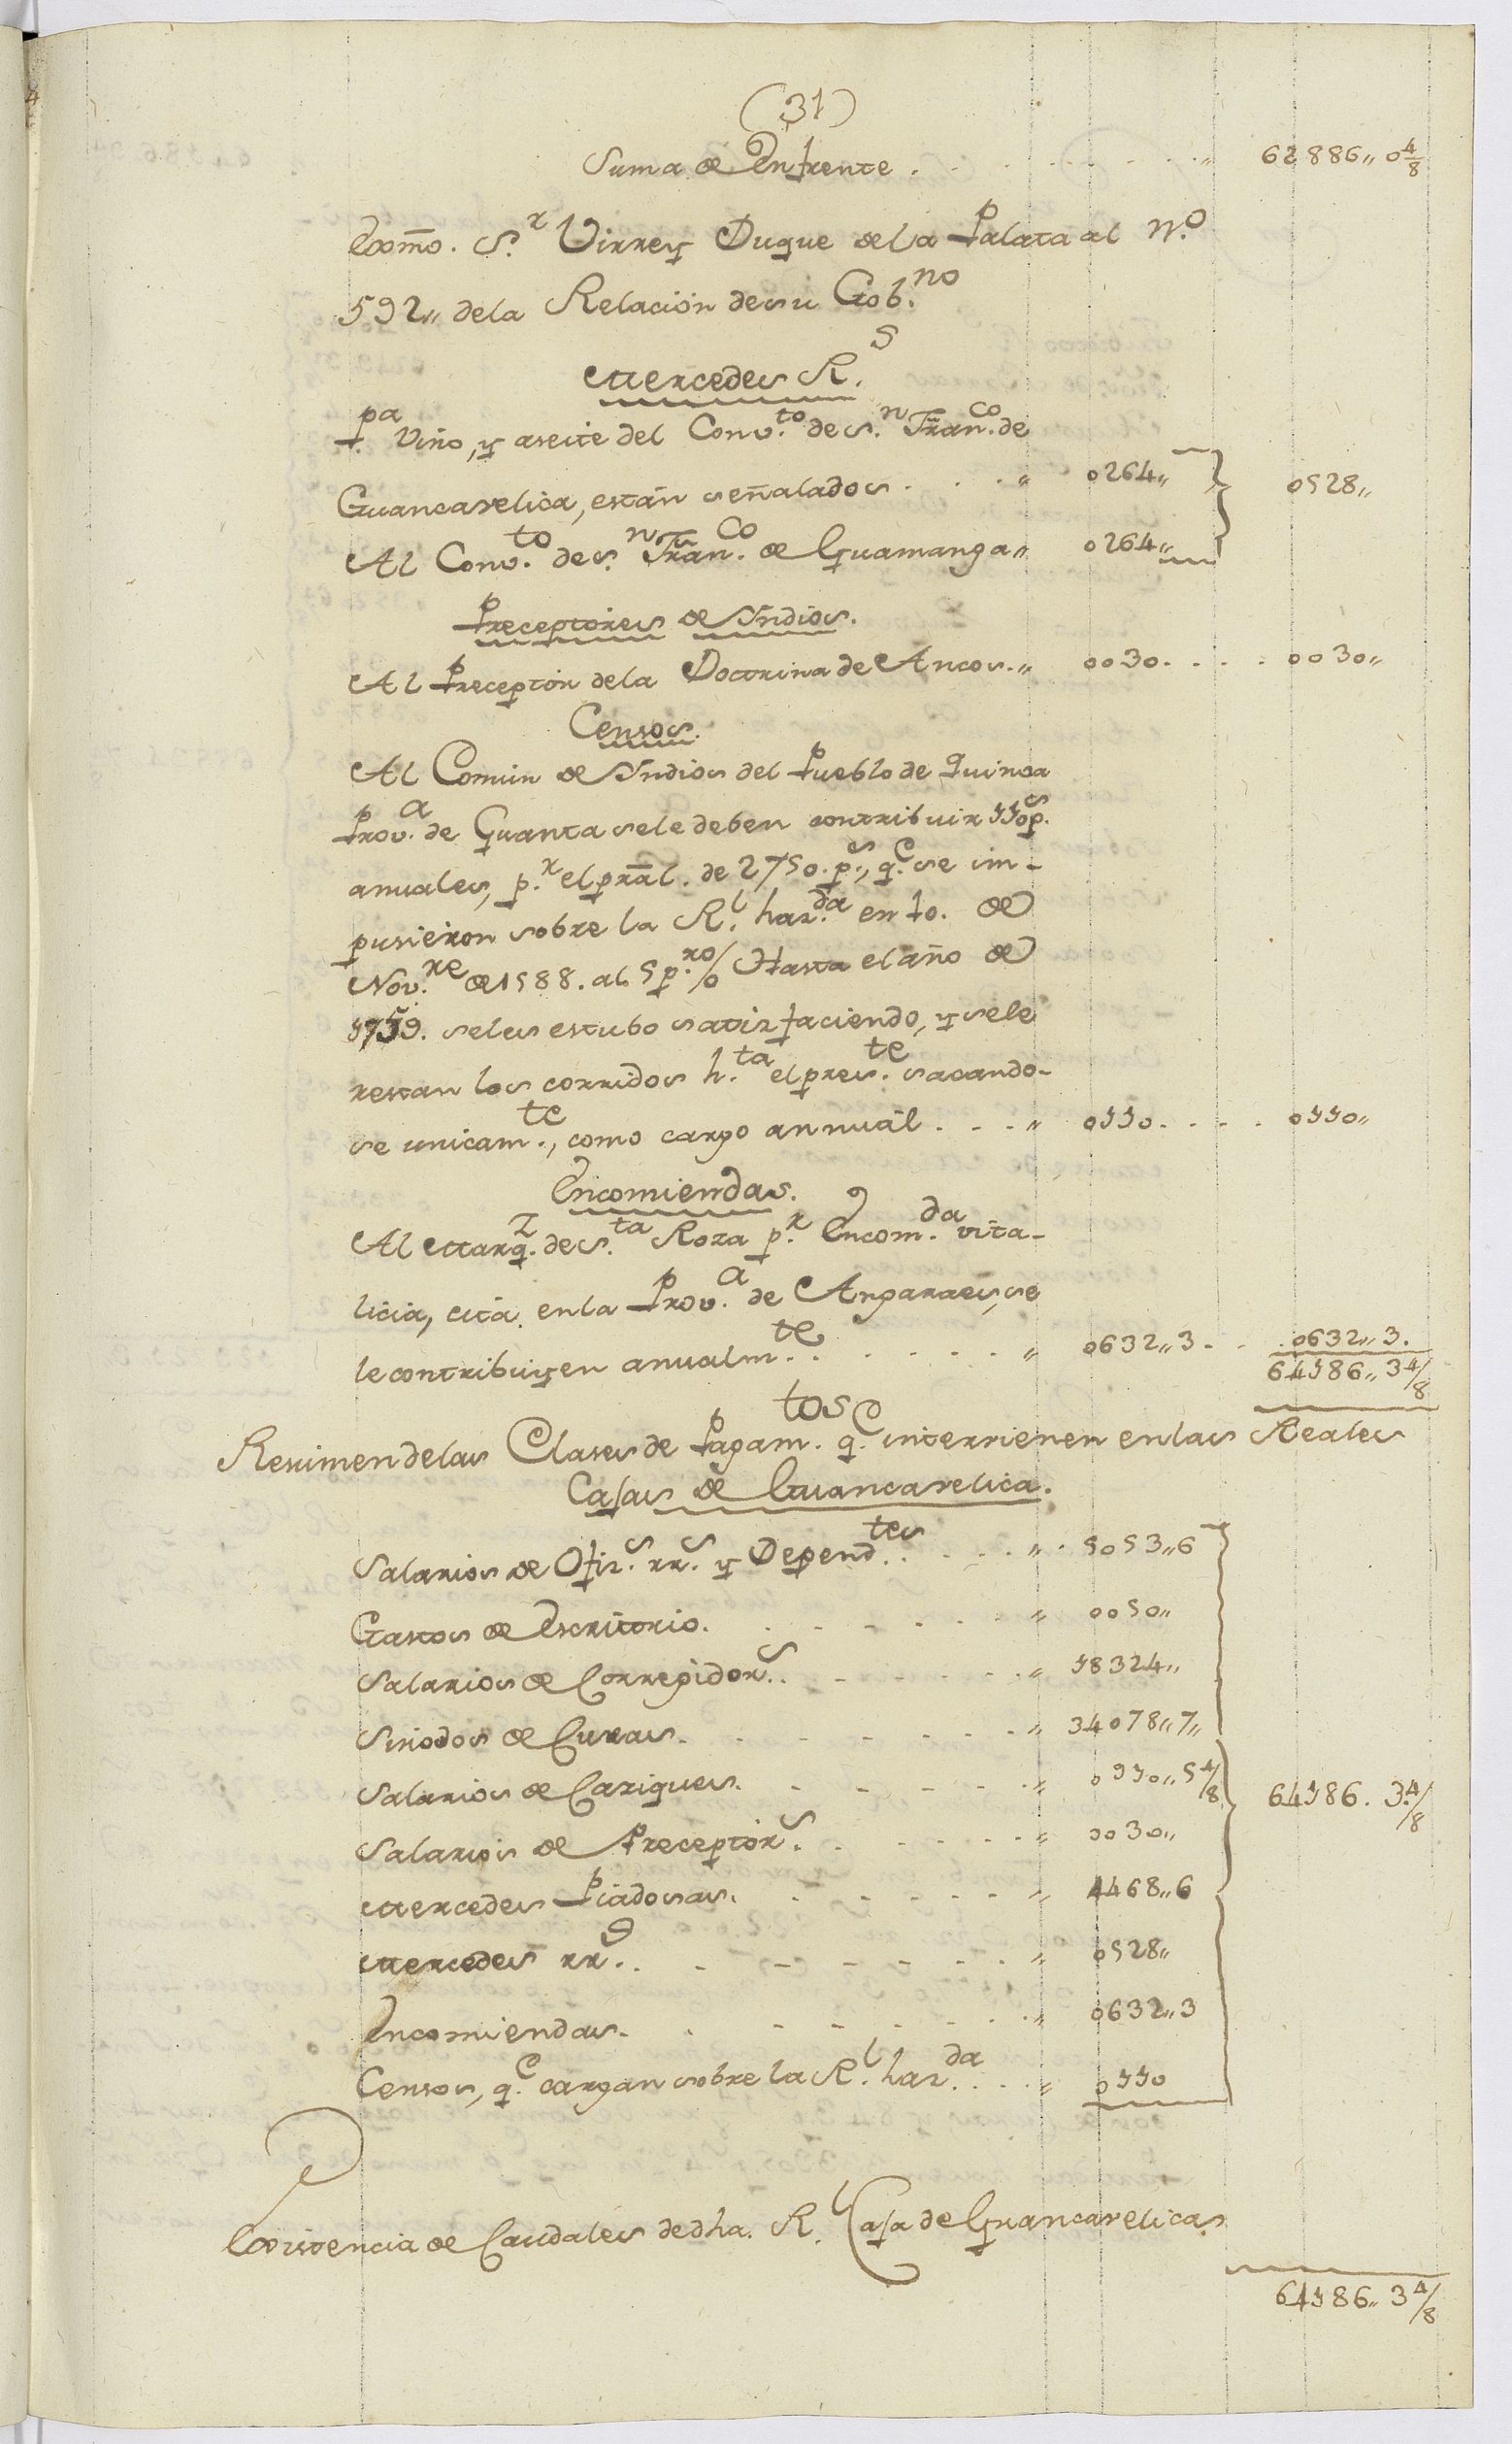 (31)
Suma de Enfrente . . . . . . . . . „ 62886„ 0 4/8
Exmo. S.r Virrey Duque de la Palata al N.o
592„ dela Relacion desu Gob.no
Mercedes R.s
P.a Vino, y aseite del Conv.to de S.n Fran.co de
Guancavelica, están señalados . . . „ 0264„ 0528„
Al Conv.to de S.n Fran.co de Guamanga „ 0264„
Preceptores de Yndios.
Al Preceptor dela Doctrina de Ancos. „ 0030. . . . 0030„
Censos.
Al Comun de Yndios del Pueblo de Quinoa
Prov.a de Guanta sele deben contribuir 110 p.s
anuales, p.r el pral. de 2750. p.s, q.e se im-
pusieron sobre la R.l haz.da en 1o. de
Nov.re de 1588. al 5 p.ro/o Hasta el año de
1759. seles estubo satisfaciendo, y sele
restan los corridos h.ta el pres.te sacando-
se unicam.te, como cargo annuál . . . „ 0110. . . . 0110„
Encomiendas.
Al Marq.z de S.ta Roza p.r Encom.da vita-
licia, cita en la Prov.a de Angaraes, se
le contribuyen anualm.te . . . . . „ 0632„ 3. . . 0632„ 3.
64186„ 3 4/8
Resumen delas Clases de Pagam.tos q.e intervienen en las Reales
Cajas de Guancavelica.
Salarios de Ofiz.s rr.s y Depend.tes . . . „ 5053„ 6
Gastos de Escritorio. . . . . . . „ 0050„
Salarios de Corregidor.s . . . . . „ 18324„
Sinodos de Curas. . . . . . . „ 34078„ 7„
Salarios de Caziques. . . . . . „ 0910„ 5 4/8 64186. 3. 4/8
Salarios de Preceptor.s . . . . . „ 0030„
Mercedes Piadosas. . . . . . „ 4468„ 6
Mercedes rr.s . . . . . . . „ 0528„
Encomiendas. . . . . . . . „ 0632„ 3
Censos, q.e cargan sobre la R.l haz.da . . . „ 0110
Existencia de Caudales de dha. R.l Caja de Guancavelica
64186„ 3 4/8